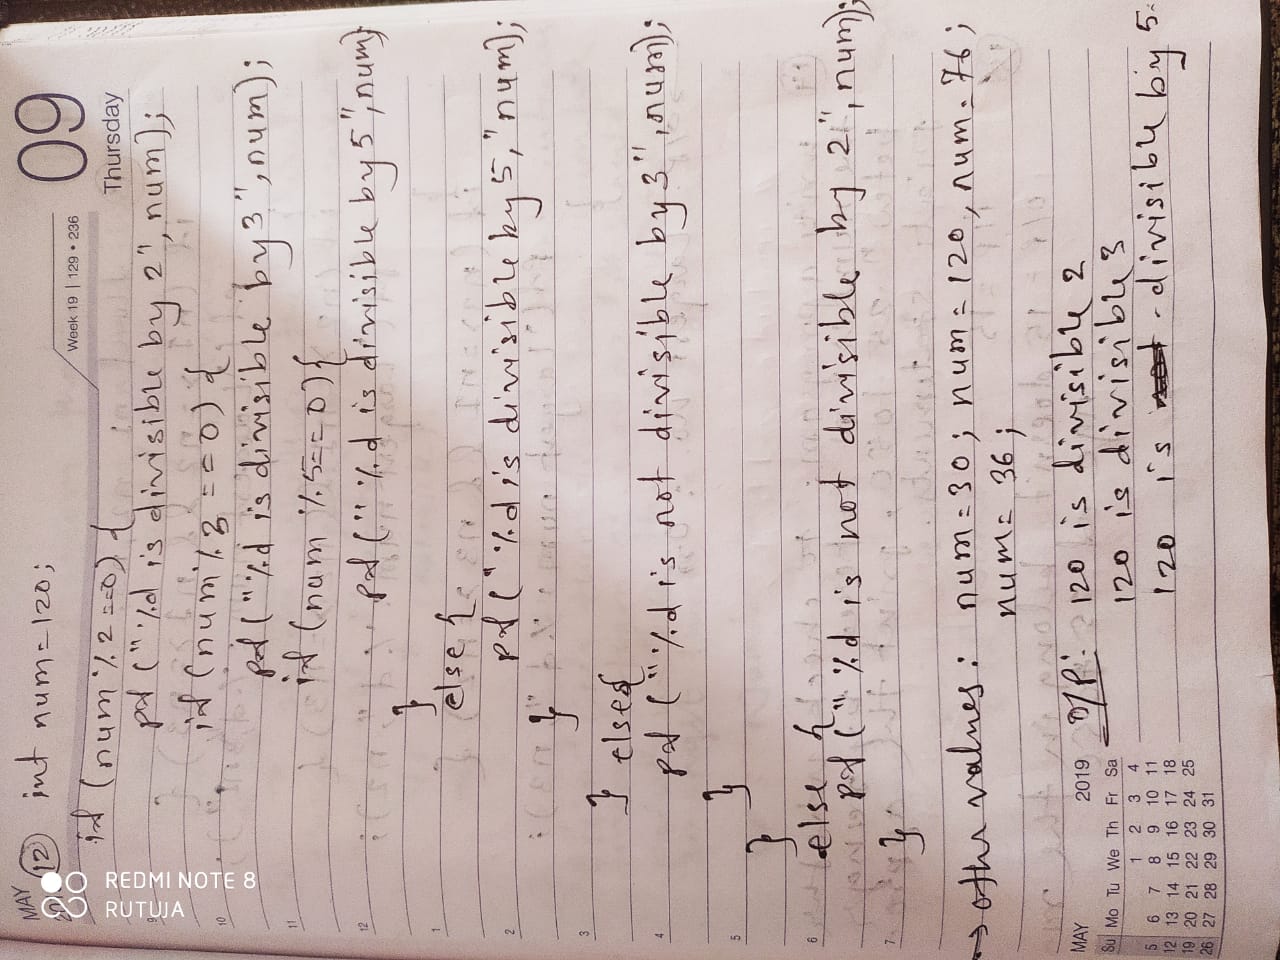 MAY
09
Week 19 | 129 • 236
Thursday
(12) int num=120;
if (num%2==0) {
pf ("%d is divisible by 2", num);
if (num%3==0) {
pf ("%d is divisible by 3", num);
if (num%5==0) {
pf ("%d is divisible by 5", num)
}
else {
pf ("%d is divisible by 5," num);
}
} else {
pf ("%d is not divisible by 3", num);
}
}
else {
pf ("%d is not divisible by 2", num);
}
9
10
11
12
1
2
3
4
5
6
7
→ other values: num=30; num=120, num=76;
num=36;
O/P: 120 is divisible 2
120 is divisible 3
120 is divisible by 5.
MAY 2019
Su Mo Tu We Th Fr Sa
1 2 3 4
5 6 7 8 9 10 11
12 13 14 15 16 17 18
19 20 21 22 23 24 25
26 27 28 29 30 31
REDMI NOTE 8
RUTUJA